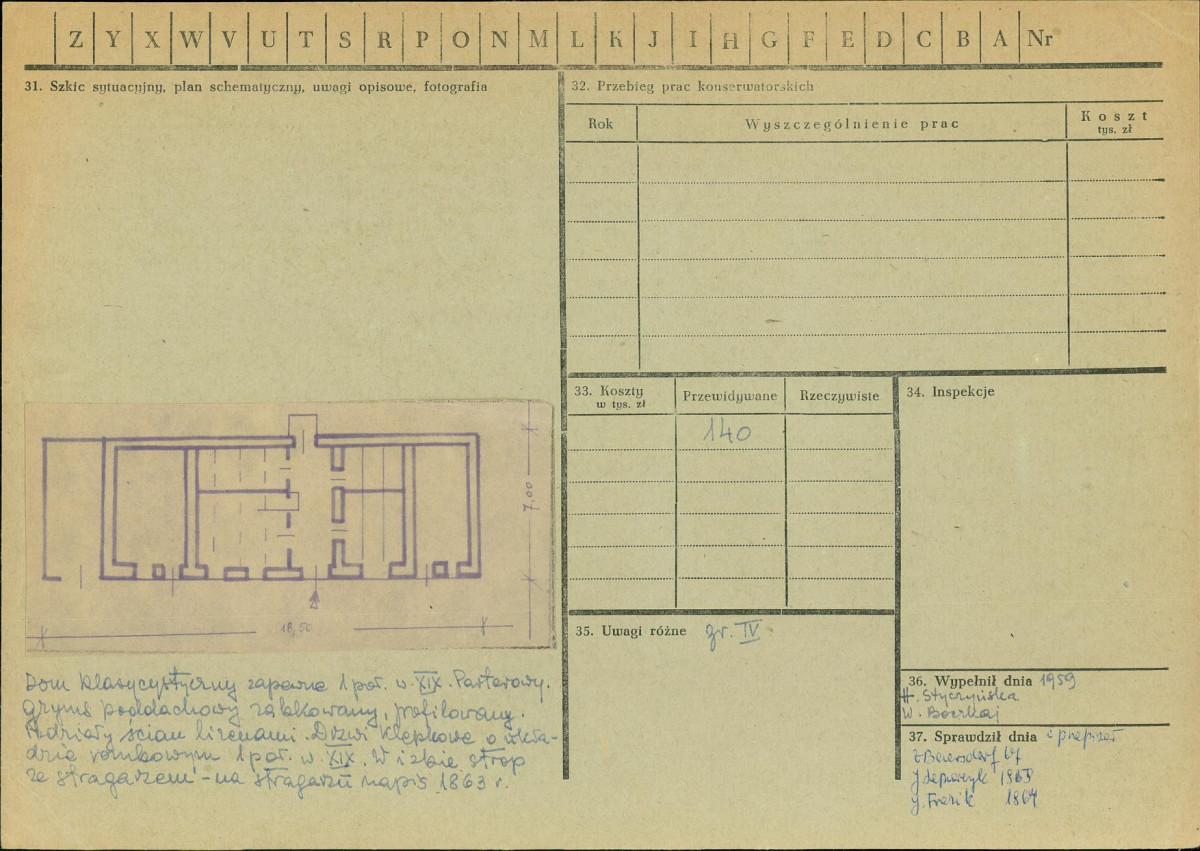 Z Y X W V U T S R P O N M L K J I H G F E D C B A Nr
31. Szkic sytuacyjny, plan schematyczny, uwagi opisowe, fotografia
7,00
18,50
Dom klasycystyczny zapewne 1 poł. w. XIX. Parterowy.
gzyms poddachowy ząbkowany, profilowany.
Podziały ścian lizenami. Drzwi klepkowe o ukła-
dzie rombowym 1 poł. w. XIX. W izbie strop
ze stragarzem - na stragarzu napis 1863 r.
32. Przebieg prac konserwatorskich
Rok Wyszczególnienie prac Koszt
tys. zł
33. Koszty
w tys. zł
Przewidywane Rzeczywiste
140
34. Inspekcje
35. Uwagi różne gr. IV
36. Wypełnił dnia 1959
H. Styczyńska
W.
37. Sprawdził dnia i
1963
J. 1964